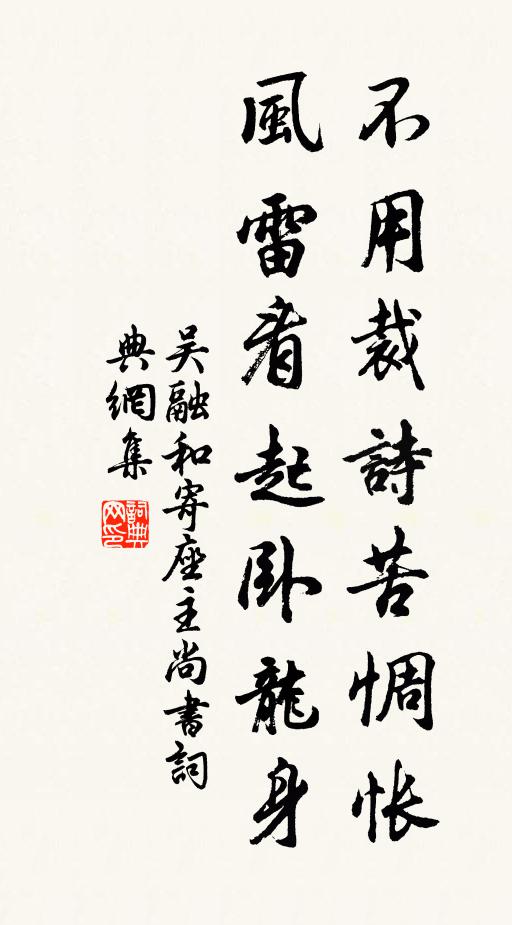 不用裁詩苦惆悵
風雷看起卧龍身
吴融和寄座主尚書詞
典網集
詞典网印